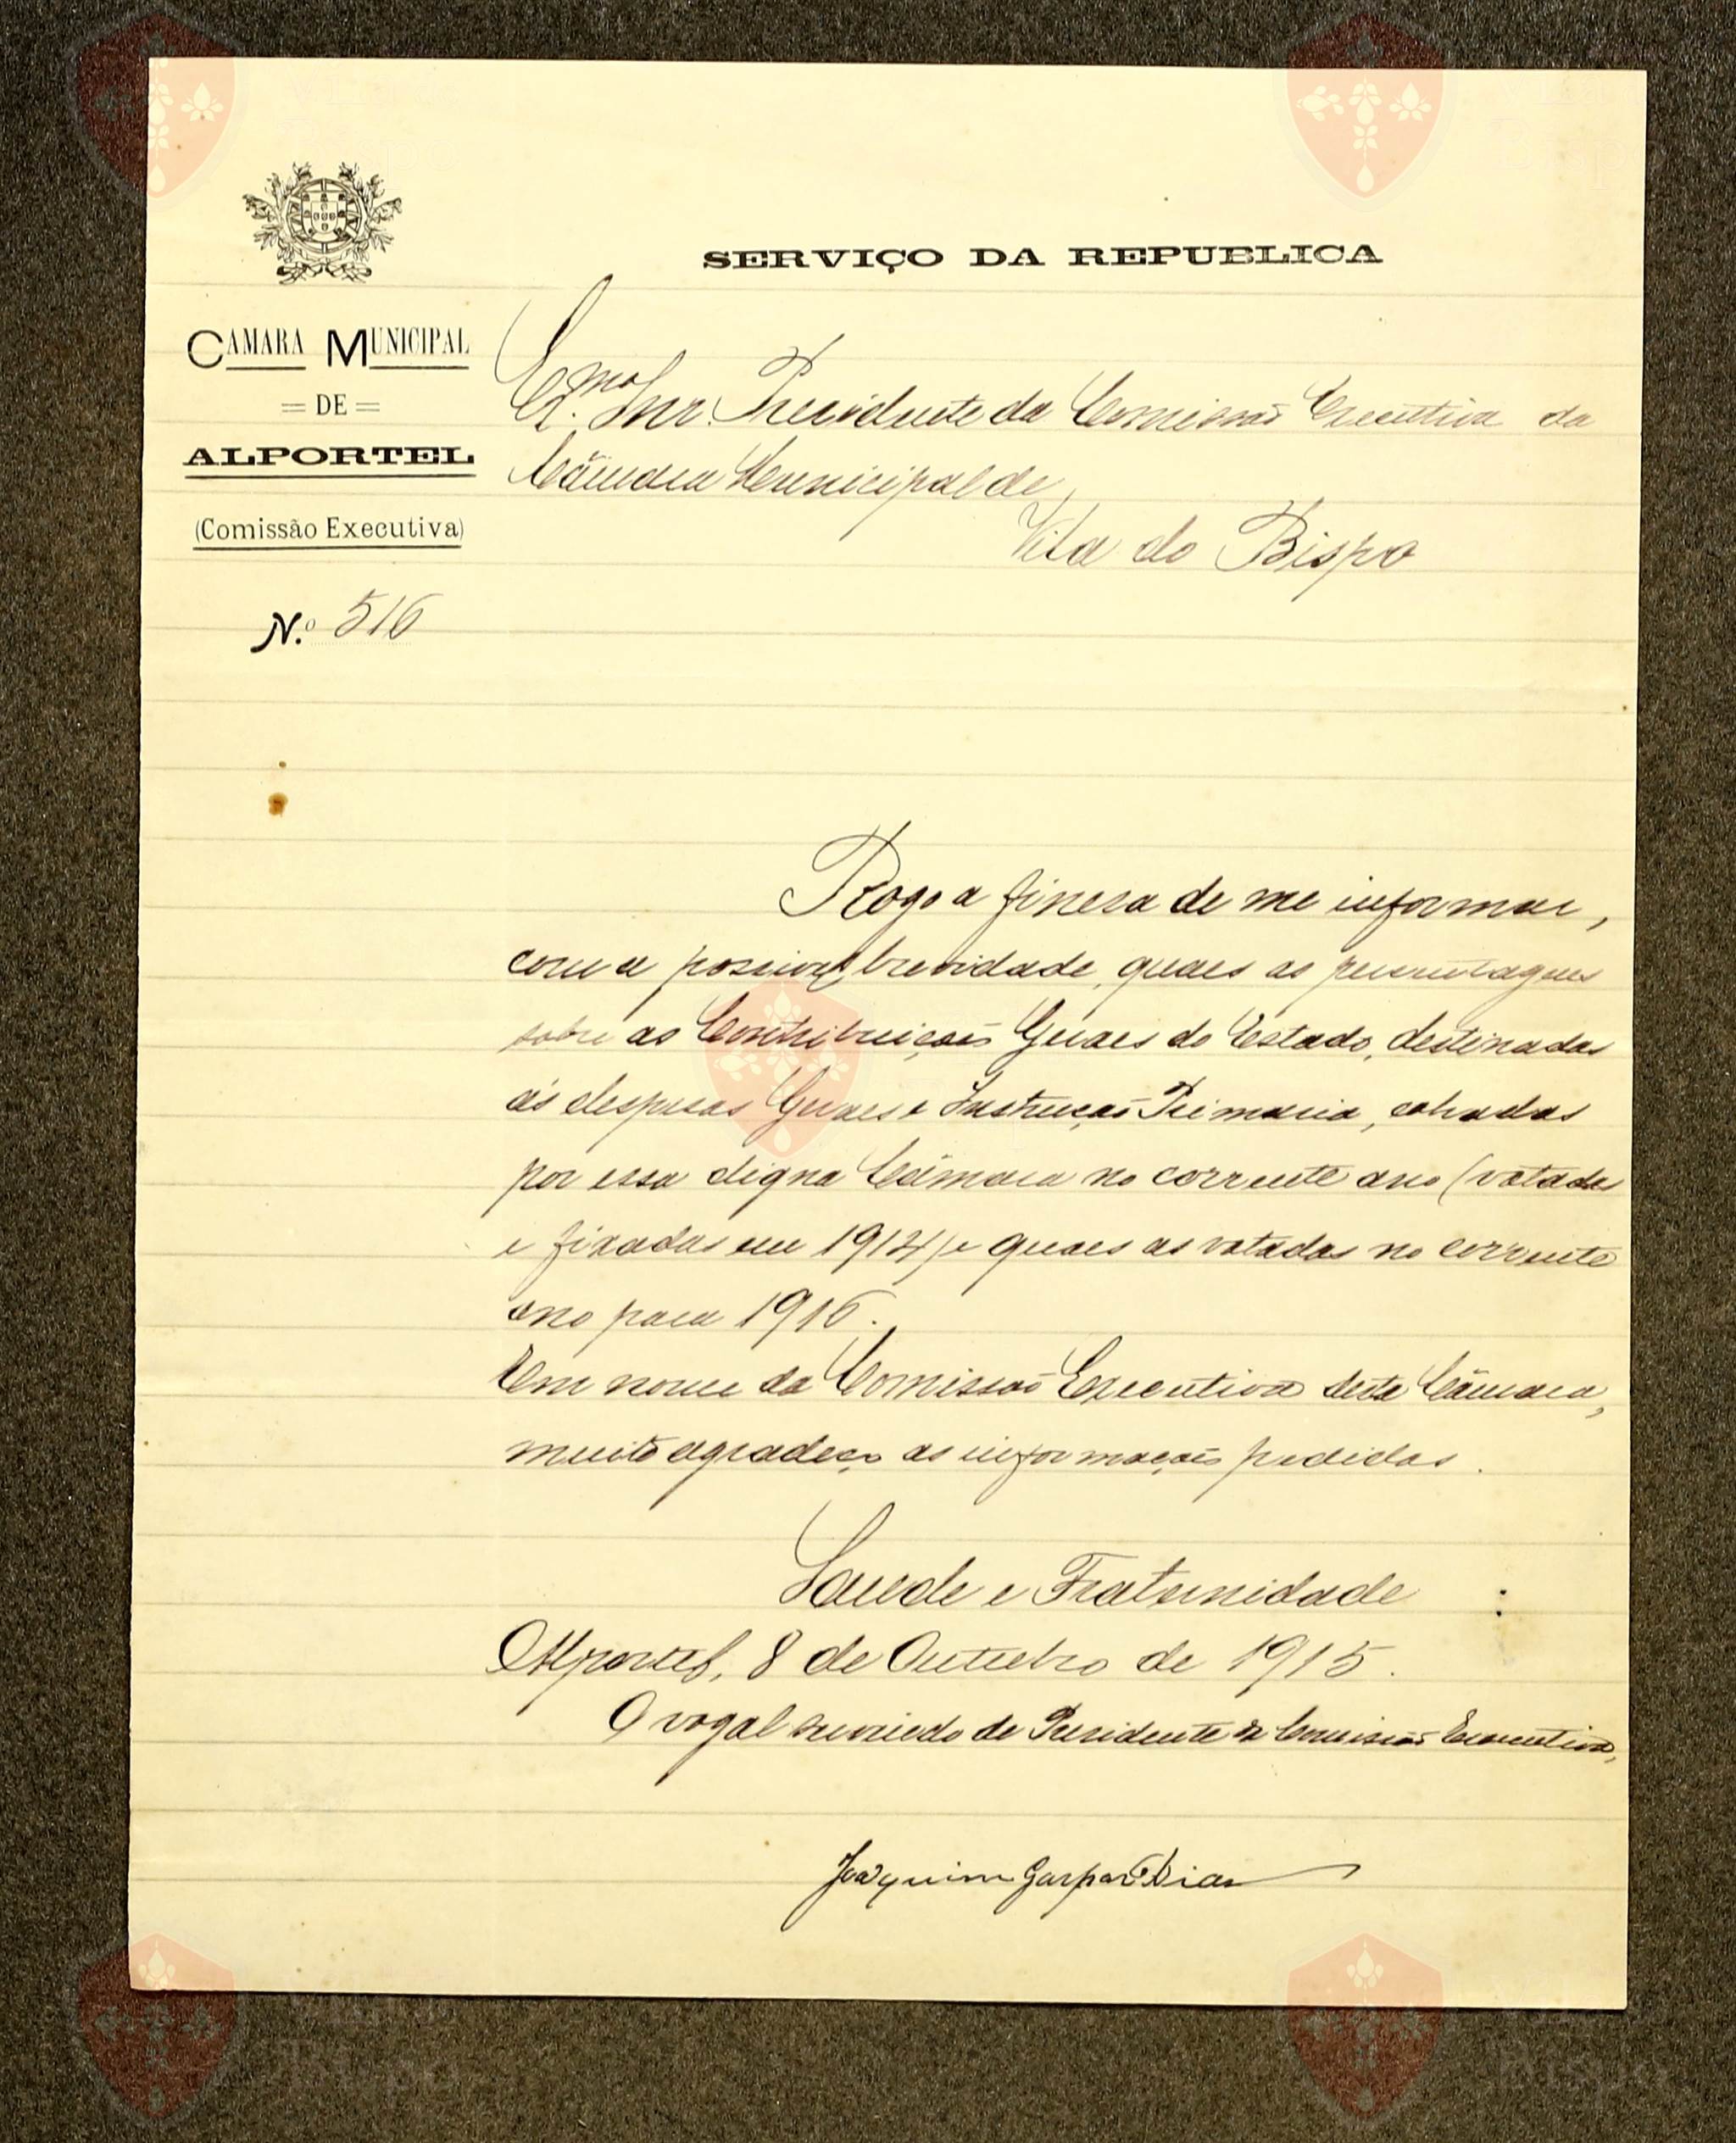 SERVIÇO DA REPUBLICA
CAMARA MUNICIPAL
= DE =
ALPORTEL
(Comissão Executiva)
N.º 516
Ex.mo Snr. Presidente da Comissão Executiva da
Câmara Municipal de
Vila do Bispo
Rogo a fineza de me informar,
com a possivel brevidade, quaes as percentagens
sobre as Contribuições Geraes do Estado, destinadas
ás despesas Geraes e Instrução Primaria, cobradas
por essa digna Câmara no corrente ano (votadas
e fixadas em 1914) e quaes as votadas no corrente
ano para 1916.
Em nome da Comissão Executiva desta Câmara,
muito agradeço as informações pedidas.
Saude e Fraternidade
Alportel, 8 de Outubro de 1915.
O vogal servindo de Presidente da Comissão Executiva,
Joaquim Gaspar Dias
Bispo